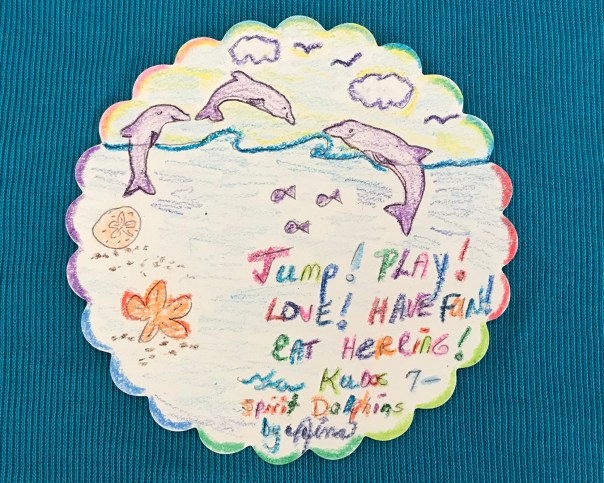 Jump! PLAY!
LOVE! HAVE FUN!
EAT HERRING!
Kubs 7-
Spirit Dolphins
by Nina